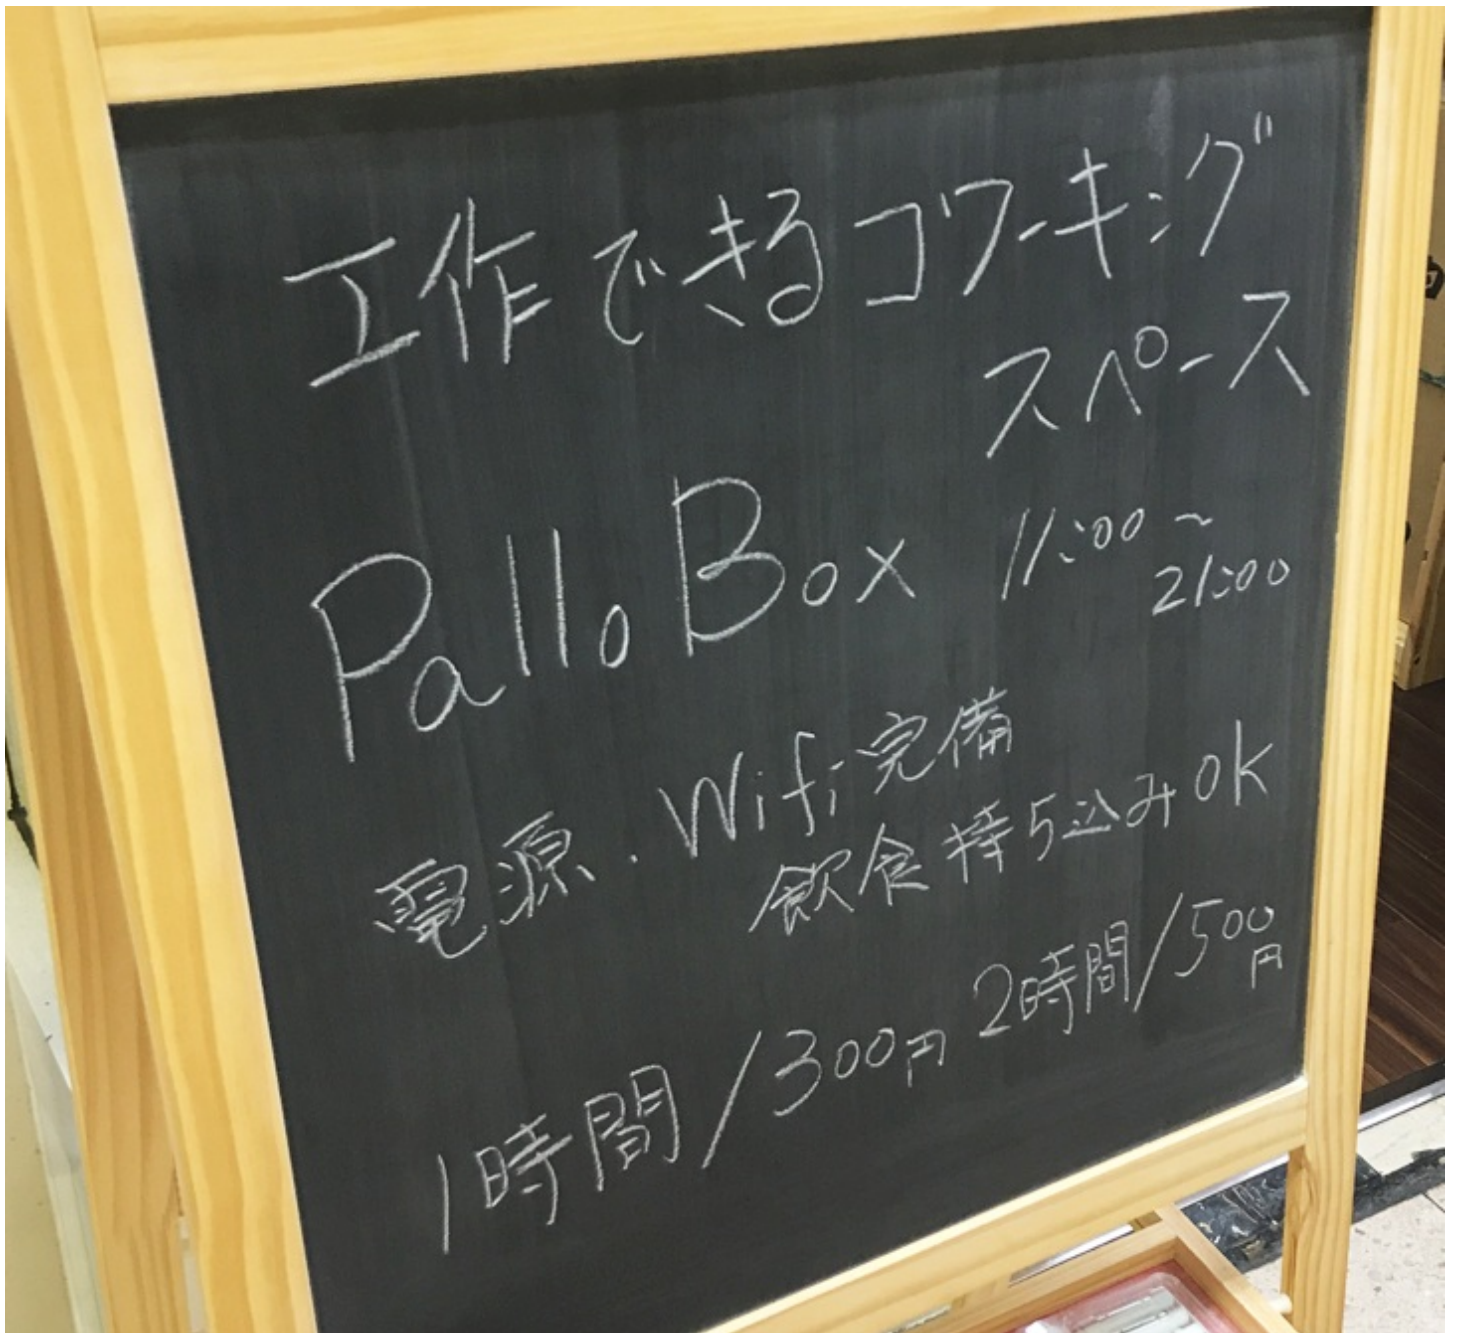 工作できるコワーキング
スペース
Pallo Box 11:00～
21:00
電源・Wifi完備
飲食持ち込みOK
1時間/300円 2時間/500
円